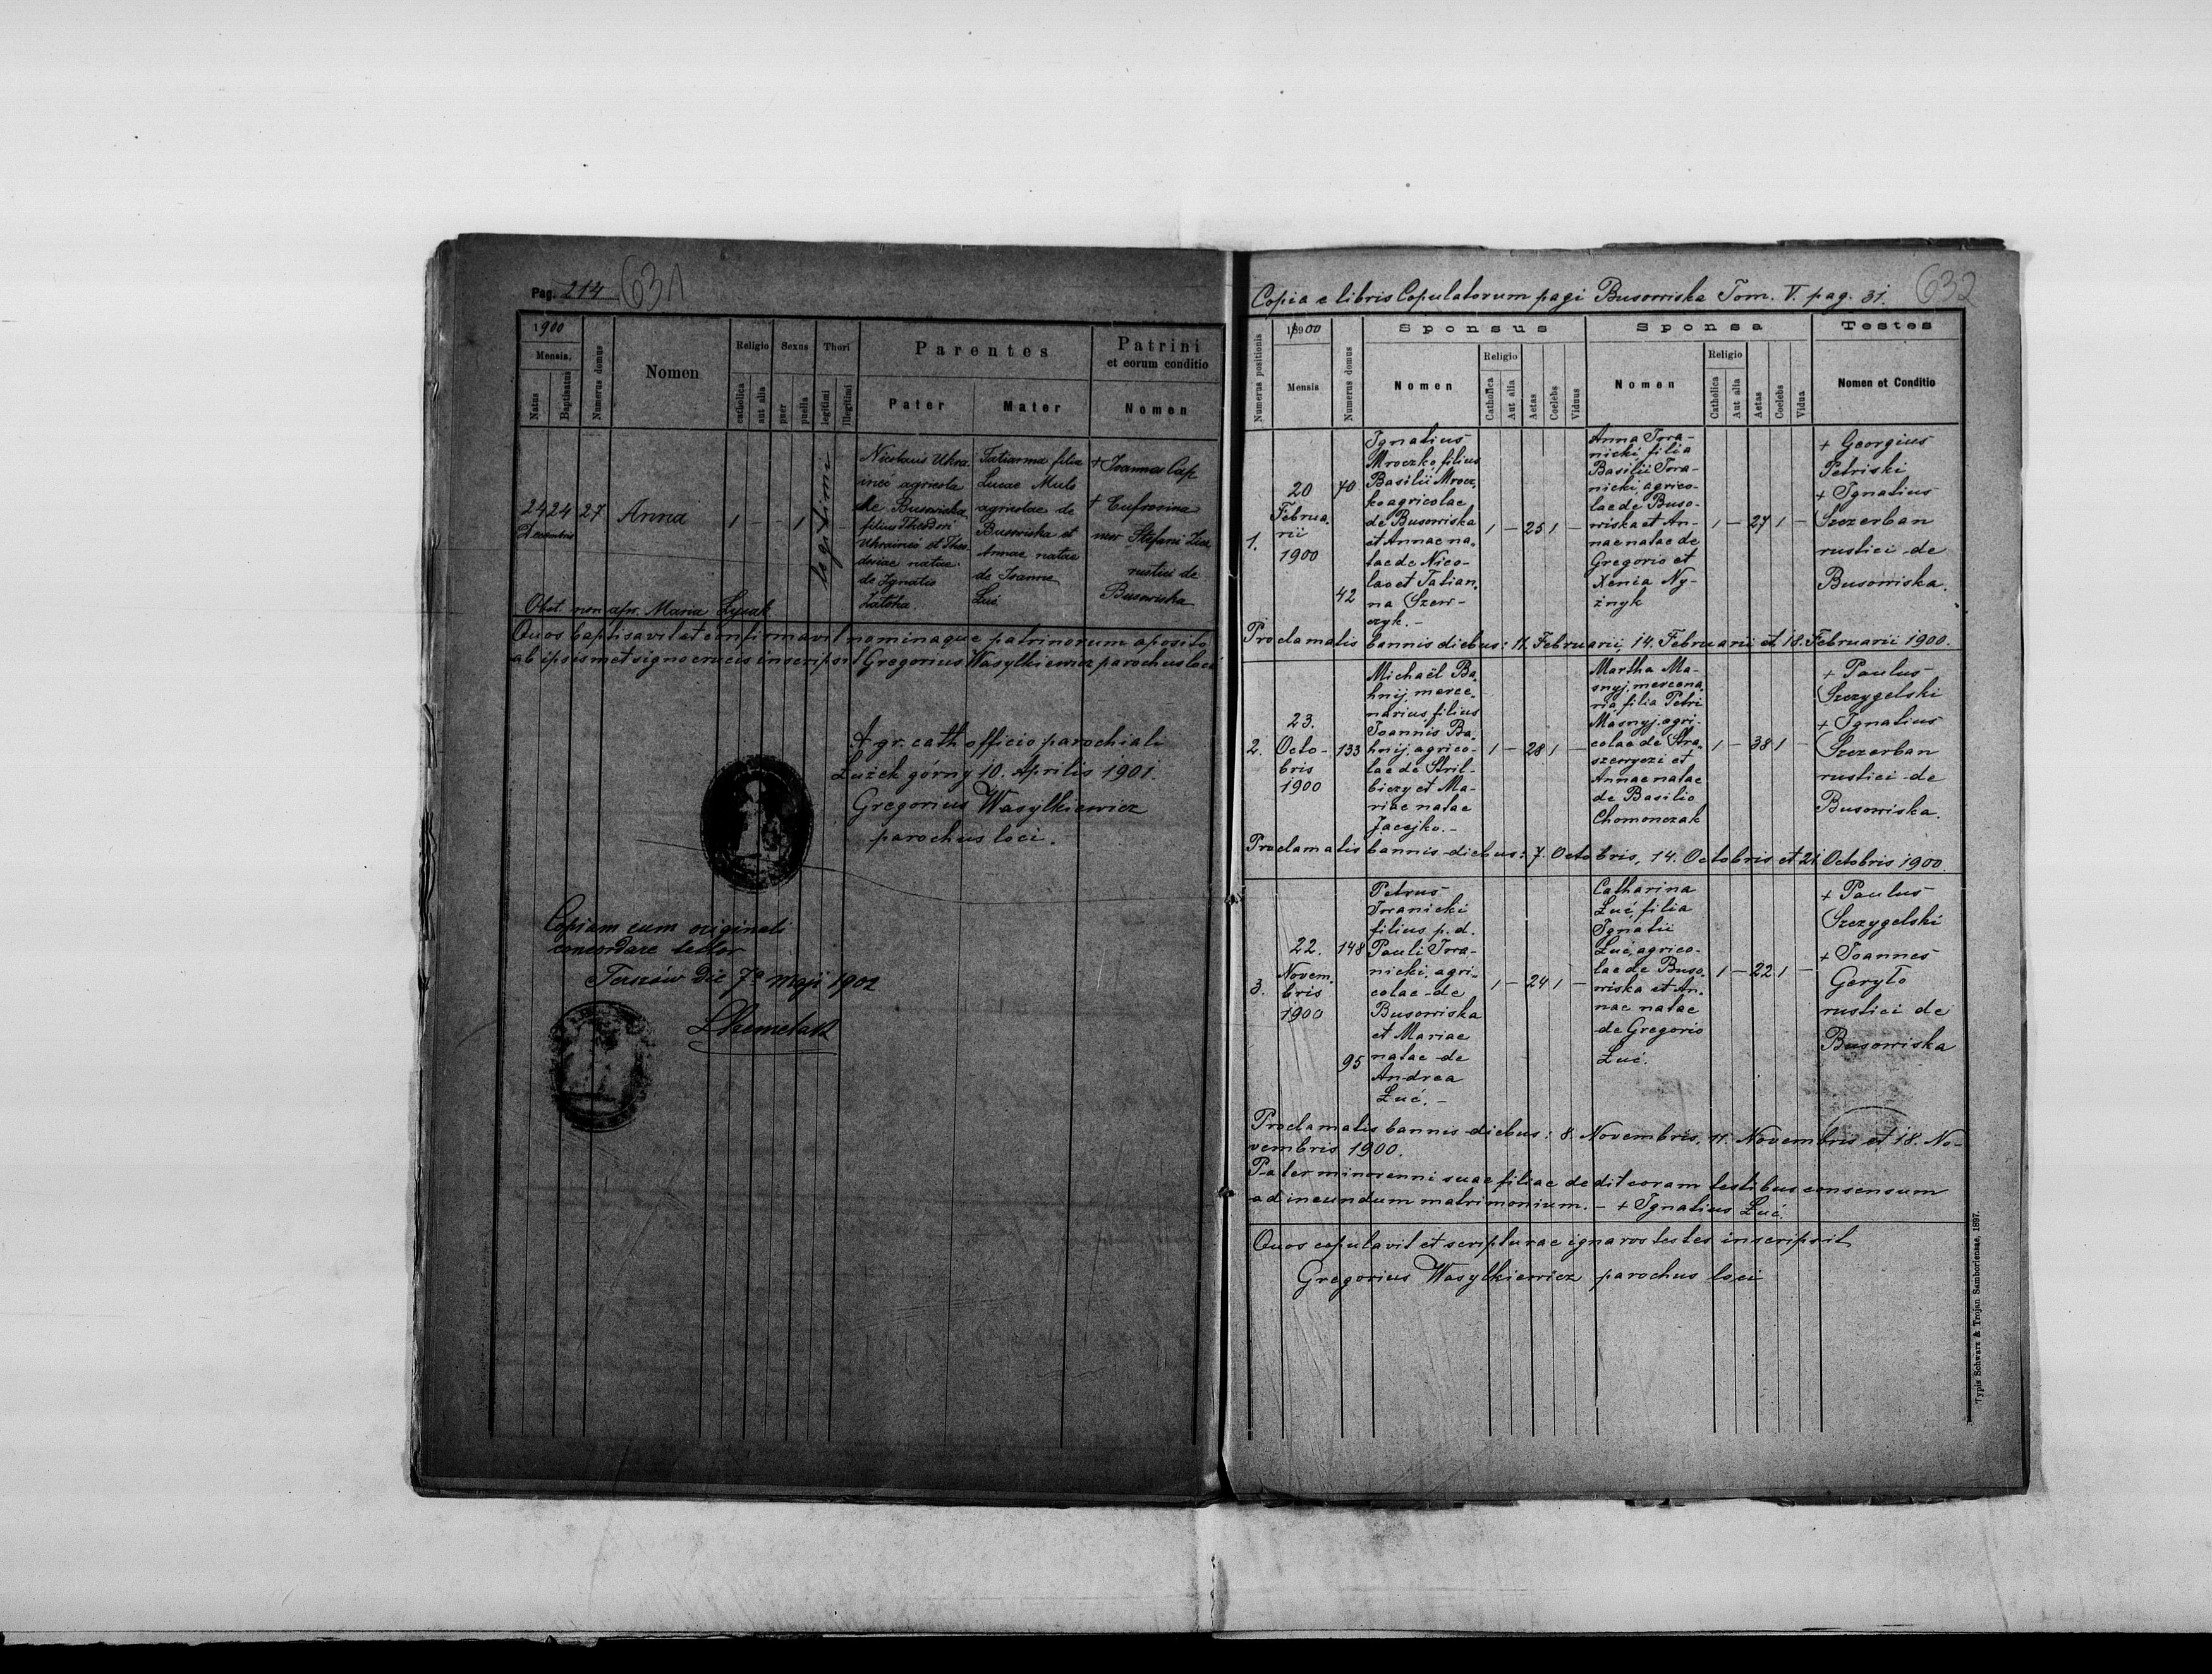 Pag. 214 631
1900
Mensis.
Natus
Baptisatus
Numerus domus
Nomen
Religio
catholica
aut alia
Sexus
puer
puella
Thori
legitimi
illegitimi
Parentes
Pater
Mater
Patrini
et eorum conditio
Nomen
24 24
Decembris
27
Anna
1 - - 1
legitimi
-
Nicolaus Ukra-
ineć agricola
de Busowiska
filius Theodori
Ukraineć et Theo-
doriae natae
de Ignatio
Zatoka.
Tatianna filia
Lucae Mulo
agricolae de
Busowiska et
Annae natae
de Joanne
Łuć
+ Joannes Cap
+ Eufrosina
uxor Stefani Łuć
rustici de
Busowiska
Obst. non apr. Maria Łysak
Quos baptisavit et confirmavit nominaque patrinorum aposito
ab ipsismet signo crucis inscripsit Gregorius Wasylkiewicz parochus loci
A gr. cath officio parochiali
Łużek górny 10. Aprilis 1901.
Gregorius Wasylkiewicz
parochus loci.
Copiam cum originali
concordare testor
die 7a Maji 1902
Copia e libris Copulatorum pagi Busowiska Tom. V. pag. 31. 632
Numerus positionis
1900
Mensis
Numerus domus
Sponsus
Nomen
Religio
Catholica
Aut alia
Aetas
Coelebs
Viduus
Sponsa
Nomen
Religio
Catholica
Aut alia
Aetas
Coelebs
Vidua
Testes
Nomen et Conditio
1.
20
Februa-
rii
1900
70
42
Ignatius
Mroczko filius
Basilii Mrocz-
ko agricolae
de Busowiska
et Annae na-
tae de Nico-
lao et Tatian-
na Szew-
czyk. -
1 - 25 1 -
Anna Tora-
nicki filia
Basilii Tora-
nicki agrico-
lae de Buso-
wiska et An-
nae natae de
Gregorio et
Xenia Ny-
żnyk
1 - 27 1 -
+ Georgius
Petriski
+ Ignatius
Szczerban
rustici de
Busowiska.
Proclamatis bannis diebus: 11. Februarii, 14. Februarii et 18. Februarii 1900.
2.
23.
Octo-
bris
1900
133
Michaël Ba-
hnij merce-
narius filius
Joannis Ba-
hnij agrico-
lae de Stril-
biczy et Ma-
riae natae
Jacejko. -
1 - 28 1 -
Martha Ma-
snyj mercena-
ria filia Petri
Masnyj agri-
colae de Stra-
szewyczi et
Annae natae
de Basilio
Chomonczak
1 - 38 1 -
+ Paulus
Szczygelski
+ Ignatius
Szczerban
rustici de
Busowiska.
Proclamatis bannis diebus: 7. Octobris, 14. Octobris et 21. Octobris 1900.
3.
22.
Novem-
bris
1900
148
95
Petrus
Toranicki
filius p. d.
Pauli Tora-
nicki, agri-
colae de
Busowiska
et Mariae
natae de
Andrea
Łuć. -
1 - 24 1 -
Catharina
Łuć filia
Ignatii
Łuć, agrico-
lae de Buso-
wiska et An-
nae natae
de Gregorio
Łuć.
1 - 22 1 -
+ Paulus
Szczygelski
+ Joannes
Geryło
rustici de
Busowiska
Proclamatis bannis diebus: 8. Novembris, 11. Novembris et 18. No-
vembris 1900.
Pater minorenni suae filiae dedit coram testibus consensum
ad ineundum matrimonium. - + Ignatius Łuć.
Quos copulavit et scripturae ignaros testes inscripsit
Gregorius Wasylkiewicz parochus loci
Typis Schwarz & Trojan Samboriensae, 1897.